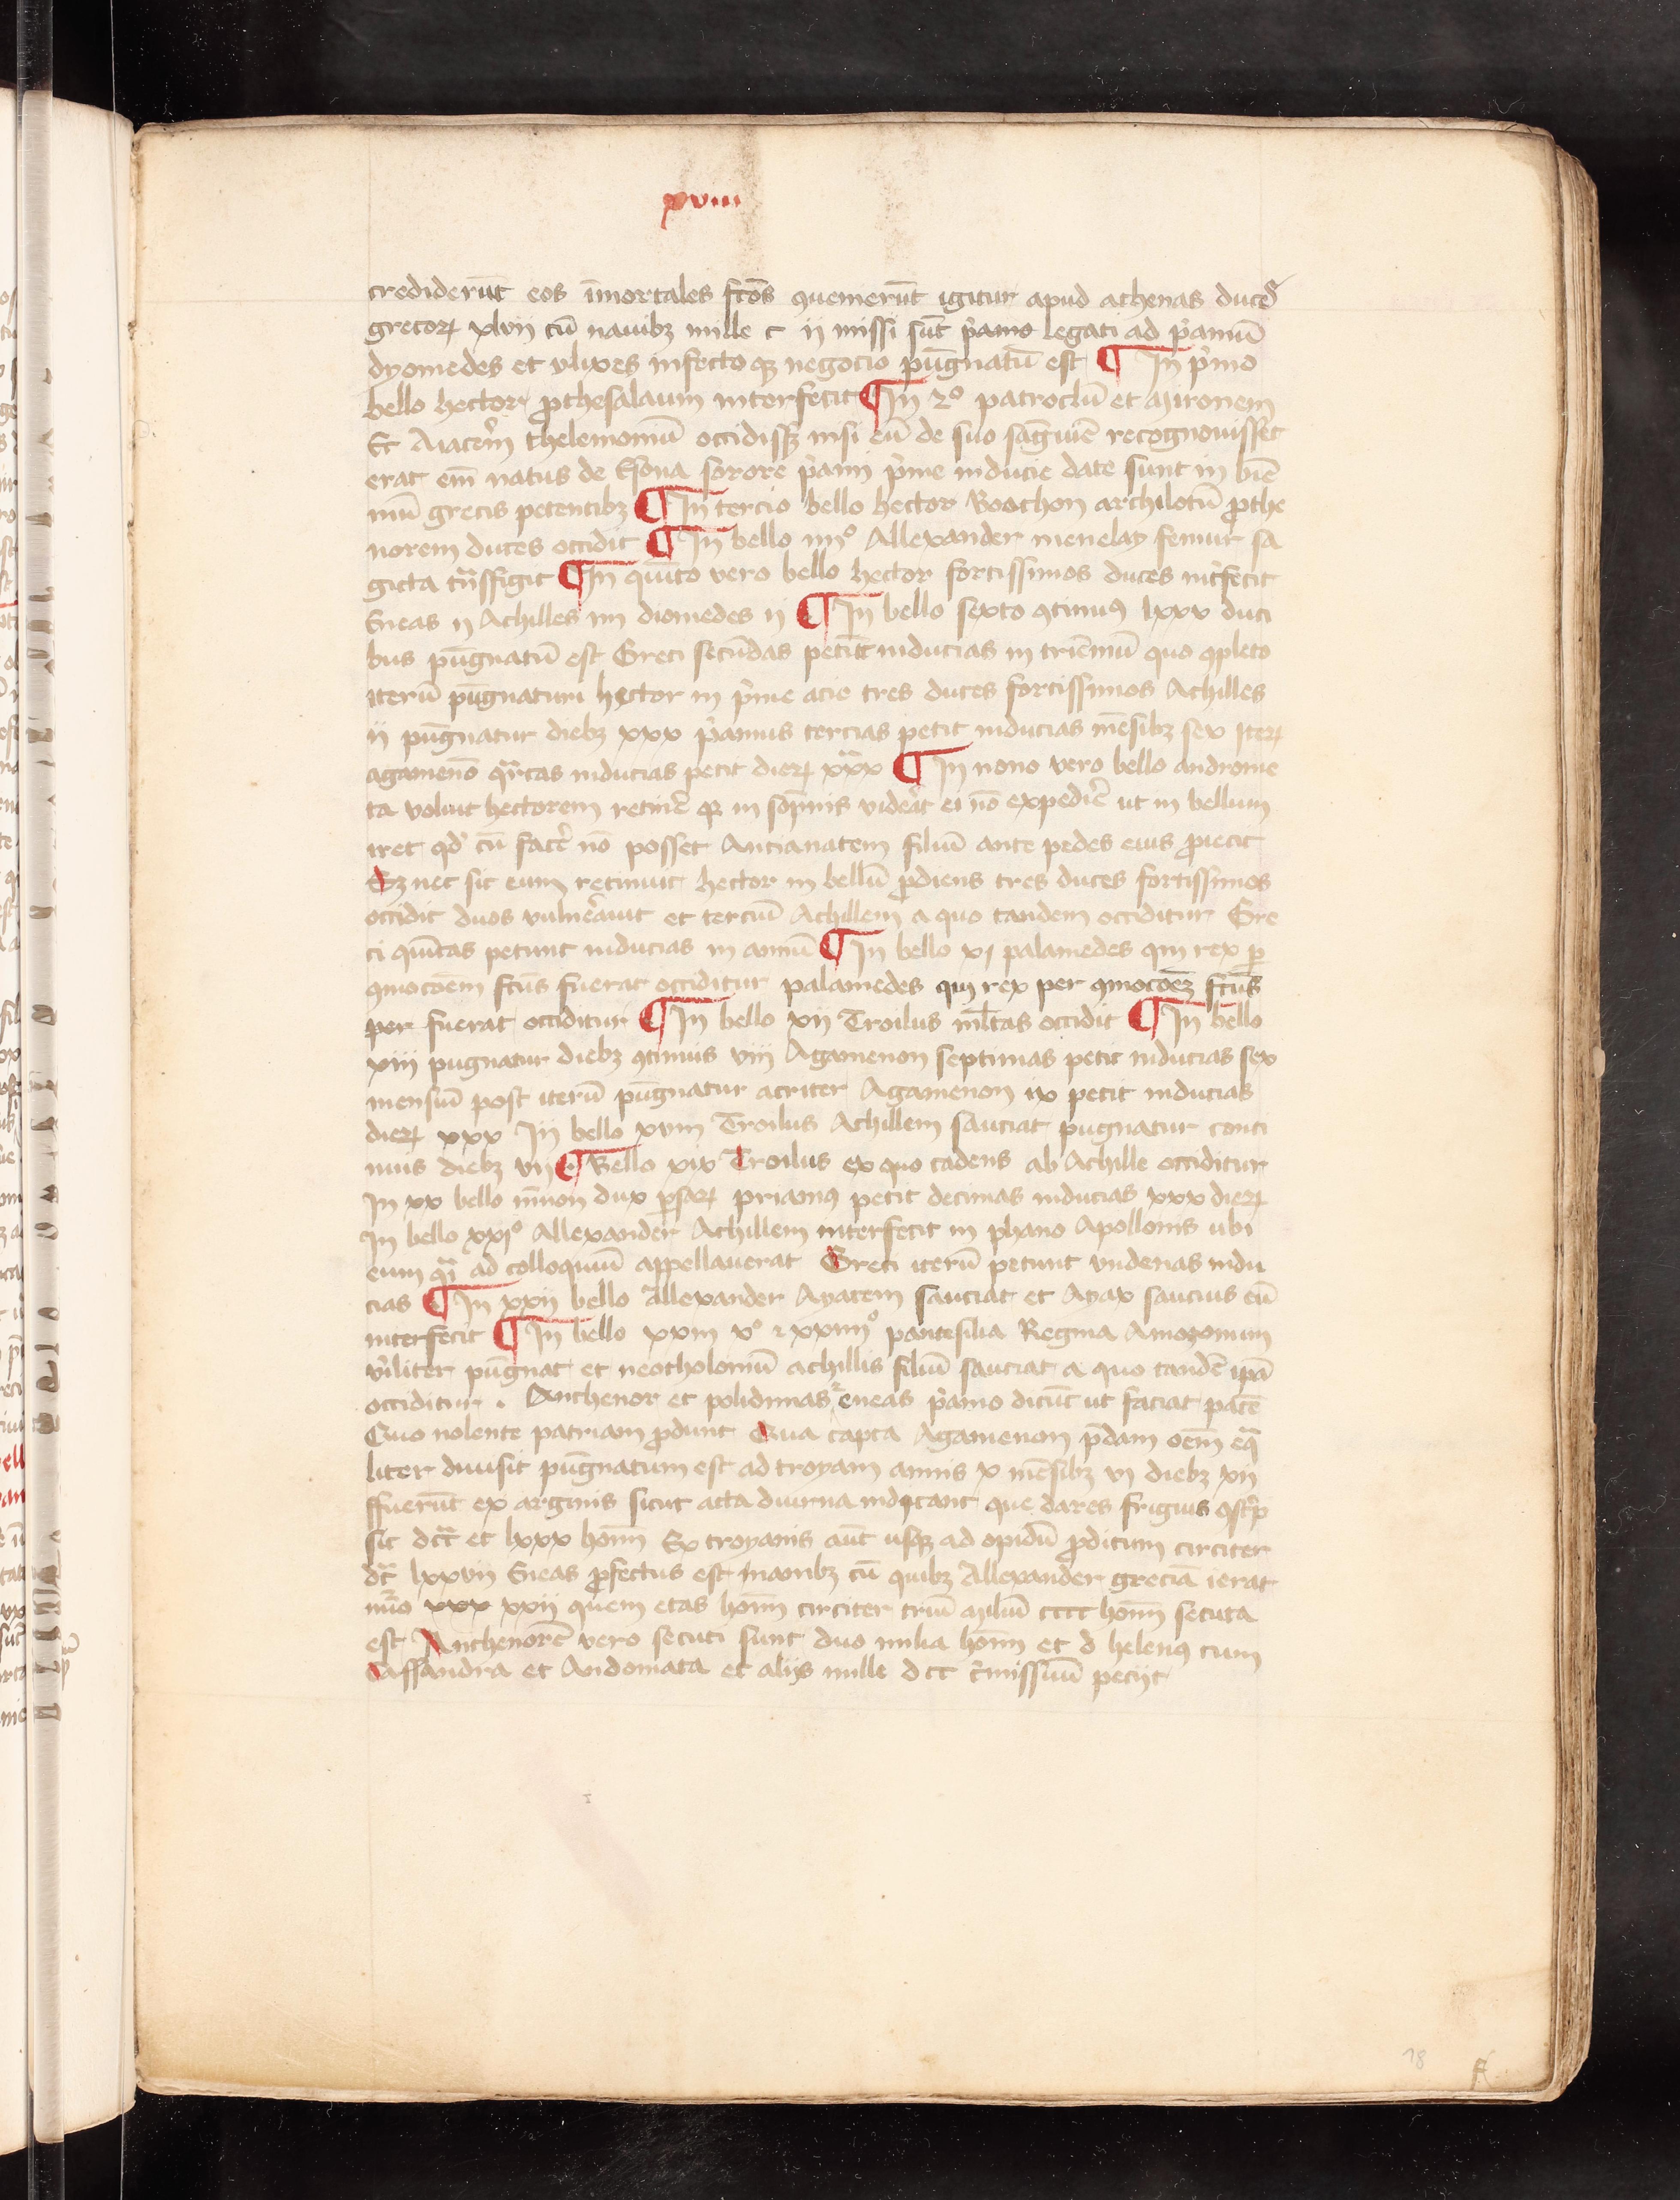 xviii
crediderūt eos īmortales fc̄os ꝯuenierūt igitur apud athenas duces
grecoꝝ xlvii cū nauibꝫ mille c ii missi sūt p̓amo legati ad p̓amū
dyomedes et vlixes infecto qꝫ negocio pūgnatū est ¶ In p̓mo
bello hector ꝓthesalaum interfecit ¶ In 2º patroclū et Mironem
Et Aiacem̄ thelemoniū occidissꝫ nisi eū de suo sāguīe recognouisset
erat em̄ natus de Esona sorore p̓ami p̓me inducie date sunt in biē
niū grecis petentibꝫ ¶ In tercio bello hector Boothon archilotū ꝓthe
norem duces occidit ¶ In bello iiiiº Allexander menelay femur sa
gicta trāsfigit ¶ In quīto vero bello hector fortissimos duces int̓fecit
Eneas ii Achilles iiii diomedes ii ¶ In bello sexto ꝯtinuꝰ lxxx duci
bus pūgnatū est Greci secūdas petūt inducias in triēniū quo ꝯpleto
iterū pūgnaturi hector in p̓me acie tres duces fortissimos Achilles
ii pūgnatur diebꝫ xxx p̓amus tercias petit inducias mēsibꝫ sex Iteꝝ
agamenō quartas inducias petit dieꝝ xxx ¶ In nono vero bello androme
ta voluit hectorem retinē̓ qꝫ in sōpnis vider̄at ei nō expedir̄e ut in bellum
iret qd̓ cū facē̓ nō posset Ancianatem filiū ante pedes eius ꝓiecit
Sꝫ nec sic eum retinuit hector in bellū ꝓdiens tres duces fortissimos
occidit duos vulnēauit et terciū Achillem a quo tandem occiditur Gre
ci quītas petunt inducias in annū ¶ In bello xi palamedes qui rex ꝑ
ꝯmocōem fc̄us fuerat occiditur palamedes qui rex per ꝯmocōeꝫ fc̄us
per fuerat occiditur ¶ In bello xii Troilus ml̄tas occidit ¶ In bello
xiii pugnatur diebꝫ ꝯtinuis viii Agamenon septimas petit inducias sex
mensiū post iterū pūgnatur acriter Agamenon ix petit inducias
dieꝝ xxx In bello xviii Troilus Achillem sauciat pugnatur conti
nuis diebꝫ vii ¶ Bello xix Troilus ex quo cadens ab Achille occiditur
In xx bello mēnon dux ꝑsaꝝ priamꝰ petit decimas inducias xxx dieꝝ
In bello xxiº Allexander Achillem interfecit in phano Apollonis ubi
eum q̄i ad colloquiū appellauerat Greci iterū petunt vndenas indu
cias ¶ In xxii bello allexander Ayacem sauciat et Ayax saucius eū
interfecit ¶ In bello xxiii vº ⁊ xxiiiiº pantesilia Regina Amozonum
viriliter pūgnat et neotholomū achillis filiū sauciat a quo tandē ip̄a
occiditur . Anthenor et polidimas ⁊ eneas p̓amo dicūt ut faciat pacē
Quo nolente patriam ꝓdunt Qua capta Agamenon p̄dam oēm eq̄a
liter diuisit pūgnatum est ad troyam annis x mēsibꝫ vi diebꝫ xii
ffuerūt ex arginis sicut acta diurna indicant que dares frigius ꝯsc̓p
sit dccc̄ et lxxx hom̄ Ex troyanis aūt usqꝫ ad opidū ꝓditum circiter
dc̄ lxxvii Eneas ꝓfectus est nauibꝫ cū quibꝫ Allexander greciā ierat
nūo xxx xxii quem etas hom̄ circiter triū miliū cccc hom̄ secuta
est Anthenorē vero secuti sunt duo milia hom̄ et d helenꝰ cum
Cassandra et Andomata et alijs mille d cc c̓missiuū peciit
18